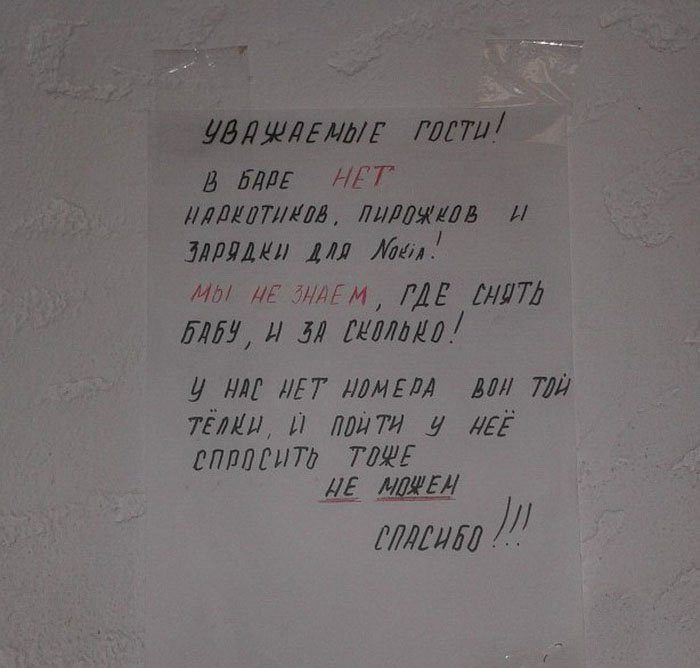 УВАЖАЕМЫЕ ГОСТИ!
В БАРЕ НЕТ
НАРКОТИКОВ, ПИРОЖКОВ И
ЗАРЯДКИ ДЛЯ Nokia!
МЫ НЕ ЗНАЕМ, ГДЕ СНЯТЬ
БАБУ, И ЗА СКОЛЬКО!
У НАС НЕТ НОМЕРА ВОН ТОЙ
ТЁЛКИ, И ПОЙТИ У НЕЁ
СПРОСИТЬ ТОЖЕ
НЕ МОЖЕМ
СПАСИБО!!!